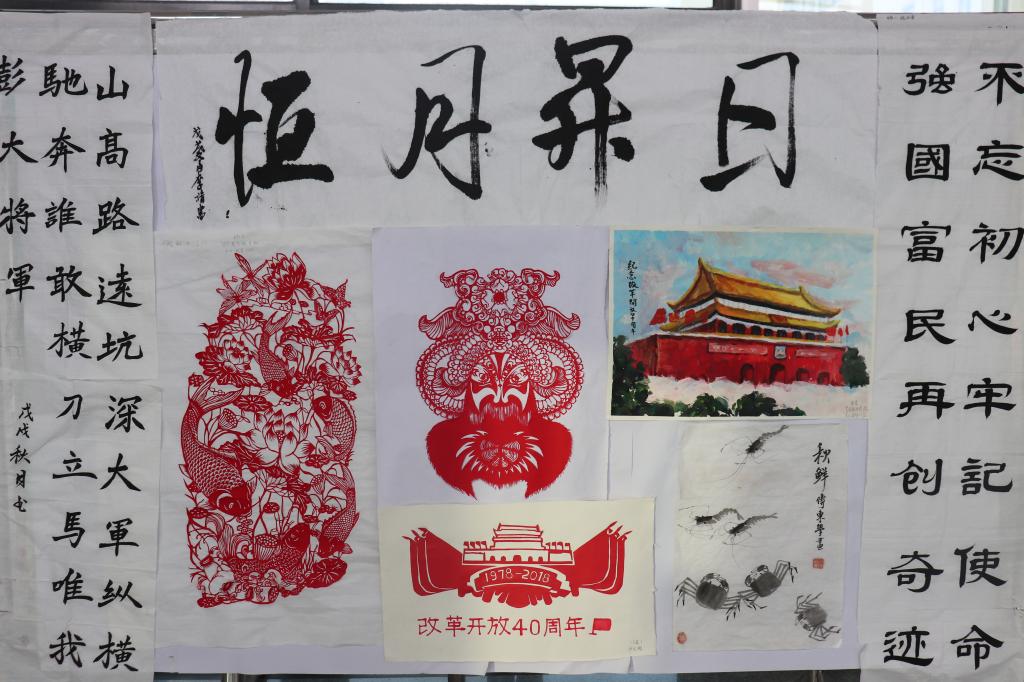 不忘初心牢記使命
強國富民再创奇迹
日昇月恒
山高路遠坑深大軍纵横
馳奔誰敢横刀立馬唯我
彭大將軍
戊戌秋月书
纪念改革開放四十周年
秋鮮
1978-2018
改革开放40周年